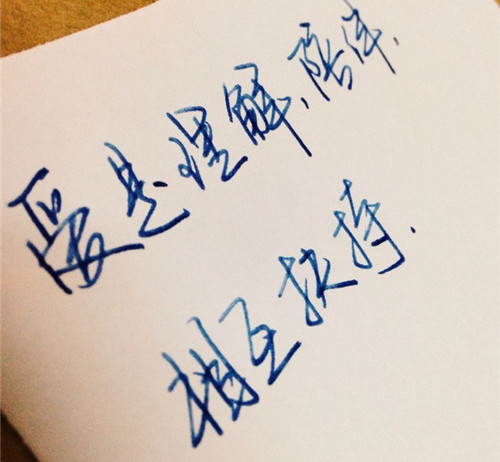 爱是理解、陪伴、
相互扶持.